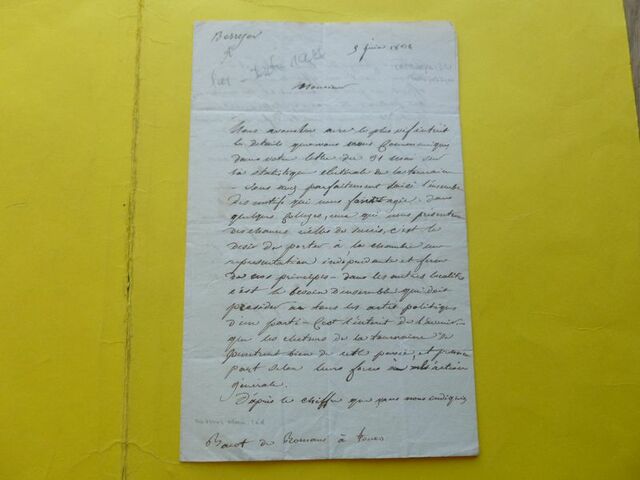 Berryer
5 juin
Monsieur
Nous avons lu avec le plus vif intérêt
les détails que vous nous communiquez
dans votre lettre du 31 mai sur
la statistique électorale de la touraine
- Vous avez parfaitement saisi l'ensemble
des motifs qui nous font agir. dans
quelques colléges, ceux qui nous présentent
des chances réelles de succès, c'est le
désir de porter à la chambre une
représentation indépendante et ferme
nos principes - dans les autres localités
c'est le besoin d'ensemble qui doit
présider à tous les actes politiques
d'un parti - C'est l'intérêt de l'avenir.
que les électeurs de la touraine se
pénètrent bien de cette pensée, et prennent
part selon leurs forces à l'action
générale.
D'après le chiffre que vous nous indiquez
Bacot de Romans à tours